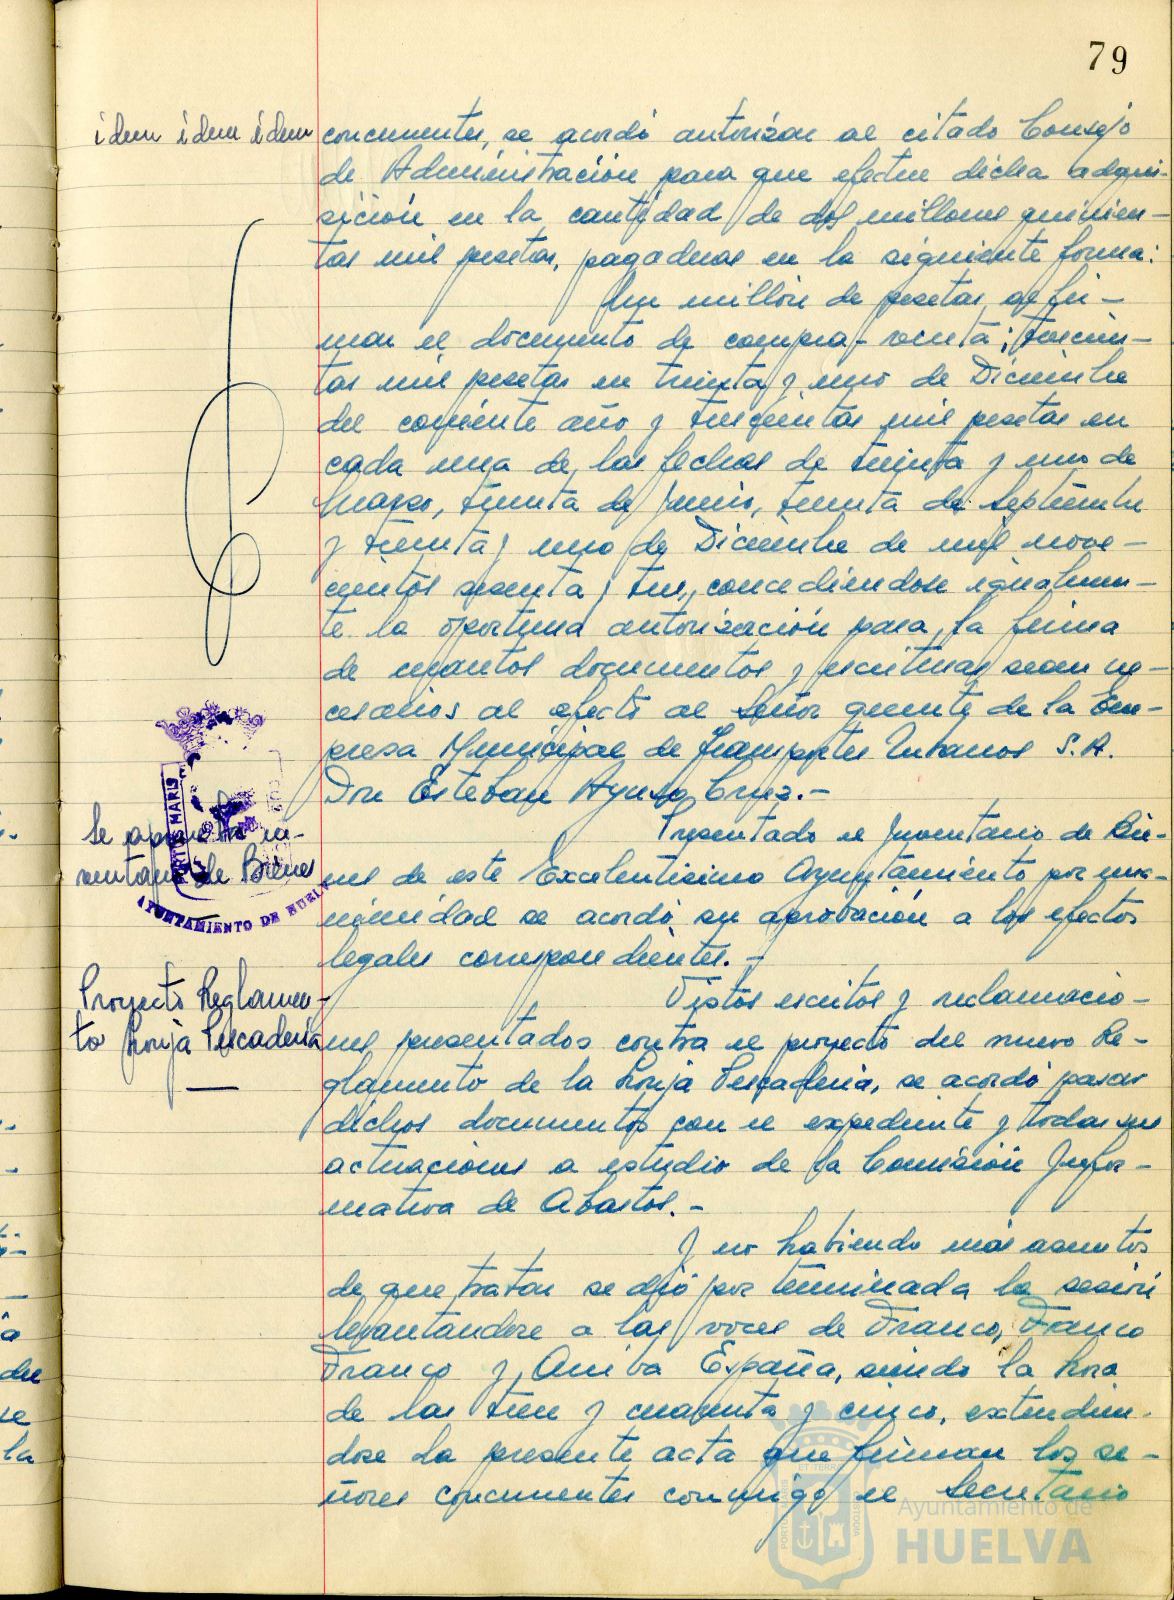 79
idem idem idem
concurrentes, se acordó autorizar al citado Consejo
de Administración para que efectue dicha adqui-
sición en la cantidad de dos millones quinien-
tas mil pesetas, pagaderas en la siguiente forma:
Un millón de pesetas al fir-
mar el documento de compra-venta; trescien-
tas mil pesetas en treinta y uno de Diciembre
del corriente año y trescientas mil pesetas en
cada una de las fechas de treinta y uno de
Marzo, treinta de Junio, treinta de Septiembre
y treinta y uno de Diciembre de mil nove-
cientos sesenta y tres, concediendose igualmen-
te la oportuna autorización para la firma
de cuantos documentos y escrituras sean ne-
cesarios al efecto al Señor gerente de la Em-
presa Municipal de Transportes Urbanos S.A.
Don Esteban Ayuso Cruz.-
Se aprueba In-
ventario de Bienes
PORTUS MARIS
AYUNTAMIENTO DE HUELVA
Presentado el Inventario de Bie-
nes de este Excelentisimo Ayuntamiento por una-
nimidad se acordó su aprobación a los efectos
legales correspondientes.-
Proyecto Reglamen-
to Lonja Pescadería
Vistos escritos y reclamacio-
nes presentados contra el proyecto del nuevo Re-
glamento de la Lonja Pescadería, se acordó pasar
dichos documentos con el expediente y todas sus
actuaciones a estudio de la Comisión Infor-
mativa de Abastos.-
Y no habiendo más asuntos
de que tratar se dió por terminada la sesión
levantandose a las voces de Franco, Franco
Franco y Arriba España, siendo la hora
de las trece y cuarenta y cinco, extendien-
dose la presente acta que firman los se-
ñores concurrentes conmigo el Secretario
Ayuntamiento de
HUELVA